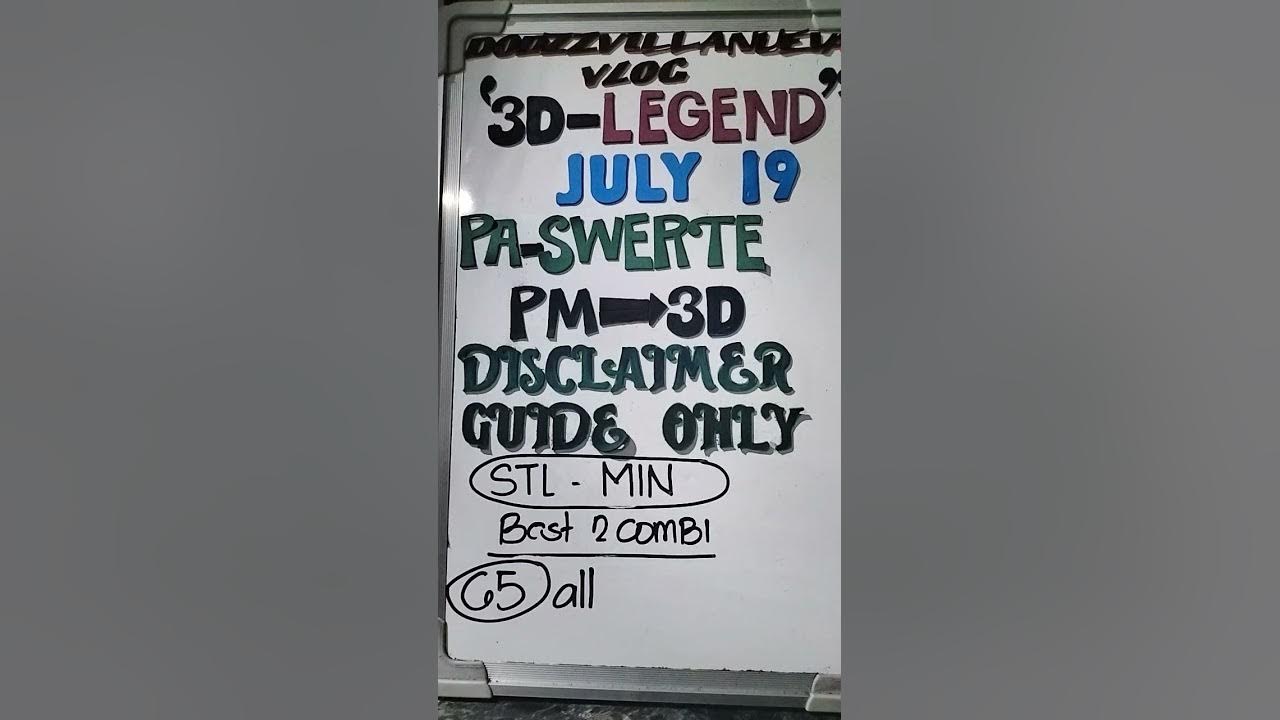 DODZZVILLANUEVA
VLOG
"3D-LEGEND"
JULY 19
PA-SWERTE
PM➡3D
DISCLAIMER
GUIDE ONLY
STL - MIN
Best 2 COMBI
65 all